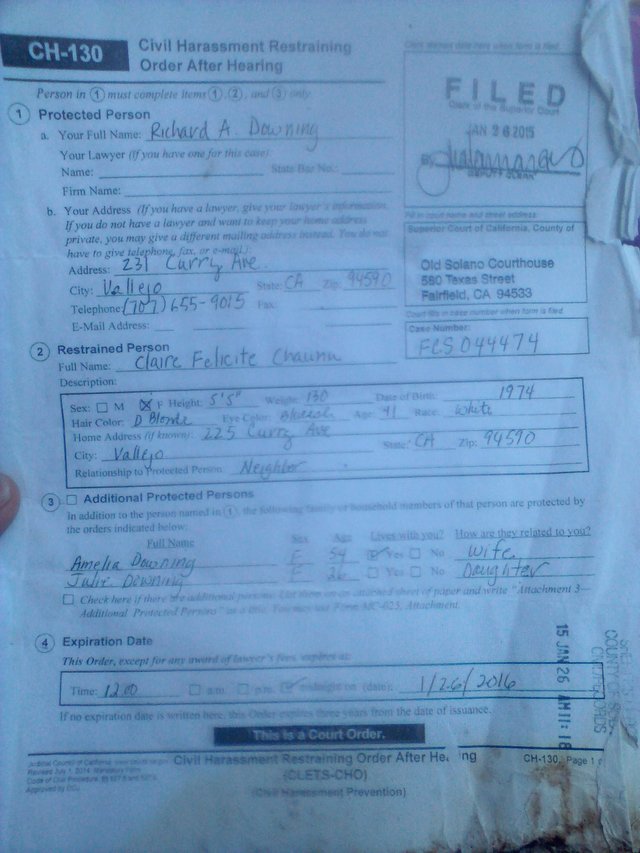 CH-130
Civil Harassment Restraining
Order After Hearing
Clerk stamps date here when form is filed.
Person in 1 must complete items 1, 2, and 3 only.
FILED
Clerk of the Superior Court
JAN 26 2015
DEPUTY CLERK
1 Protected Person
a. Your Full Name: Richard A. Downing
Your Lawyer (if you have one for this case):
Name: State Bar No.:
Firm Name:
b. Your Address (If you have a lawyer, give your lawyer's information.
If you do not have a lawyer and want to keep your home address
private, you may give a different mailing address instead. You do not
have to give telephone, fax, or e-mail.):
Address: 231 Curry Ave.
City: Vallejo State: CA Zip: 94590
Telephone: (707) 655-9015 Fax:
E-Mail Address:
Fill in court name and street address:
Superior Court of California, County of
Old Solano Courthouse
580 Texas Street
Fairfield, CA 94533
Court fills in case number when form is filed.
Case Number:
FCS044474
2 Restrained Person
Full Name: Claire Felicite Chaunu
Description:
Sex: M F Height: 5'5" Weight: 130 Date of Birth: 1974
Hair Color: D Blonde Eye Color: Age: 41 Race: White
Home Address (if known): 225 Curry Ave
City: Vallejo State: CA Zip: 94590
Relationship to Protected Person: Neighbor
3 Additional Protected Persons
In addition to the person named in 1, the following family or household members of that person are protected by
the orders indicated below:
Full Name Sex Age Lives with you? How are they related to you?
Amelia Downing F 54 Yes No Wife
Julie Downing F 26 Yes No Daughter
Check here if there are additional persons. List them on an attached sheet of paper and write "Attachment 3—
Additional Protected Persons" as a title. You may use Form MC-025, Attachment.
4 Expiration Date
This Order, except for any award of lawyer's fees, expires at:
Time: 12:00 a.m. p.m. midnight on (date): 1/26/2016
If no expiration date is written here, this Order expires three years from the date of issuance.
15 JAN 26 AM 11: 18
This is a Court Order.
Judicial Council of California
Revised July 1, 2014, Mandatory Form
Code of Civil Procedure, §§ 527.6 and 527.9
Approved by DOJ
Civil Harassment Restraining Order After Hearing
(CLETS-CHO)
(Civil Harassment Prevention)
CH-130, Page 1